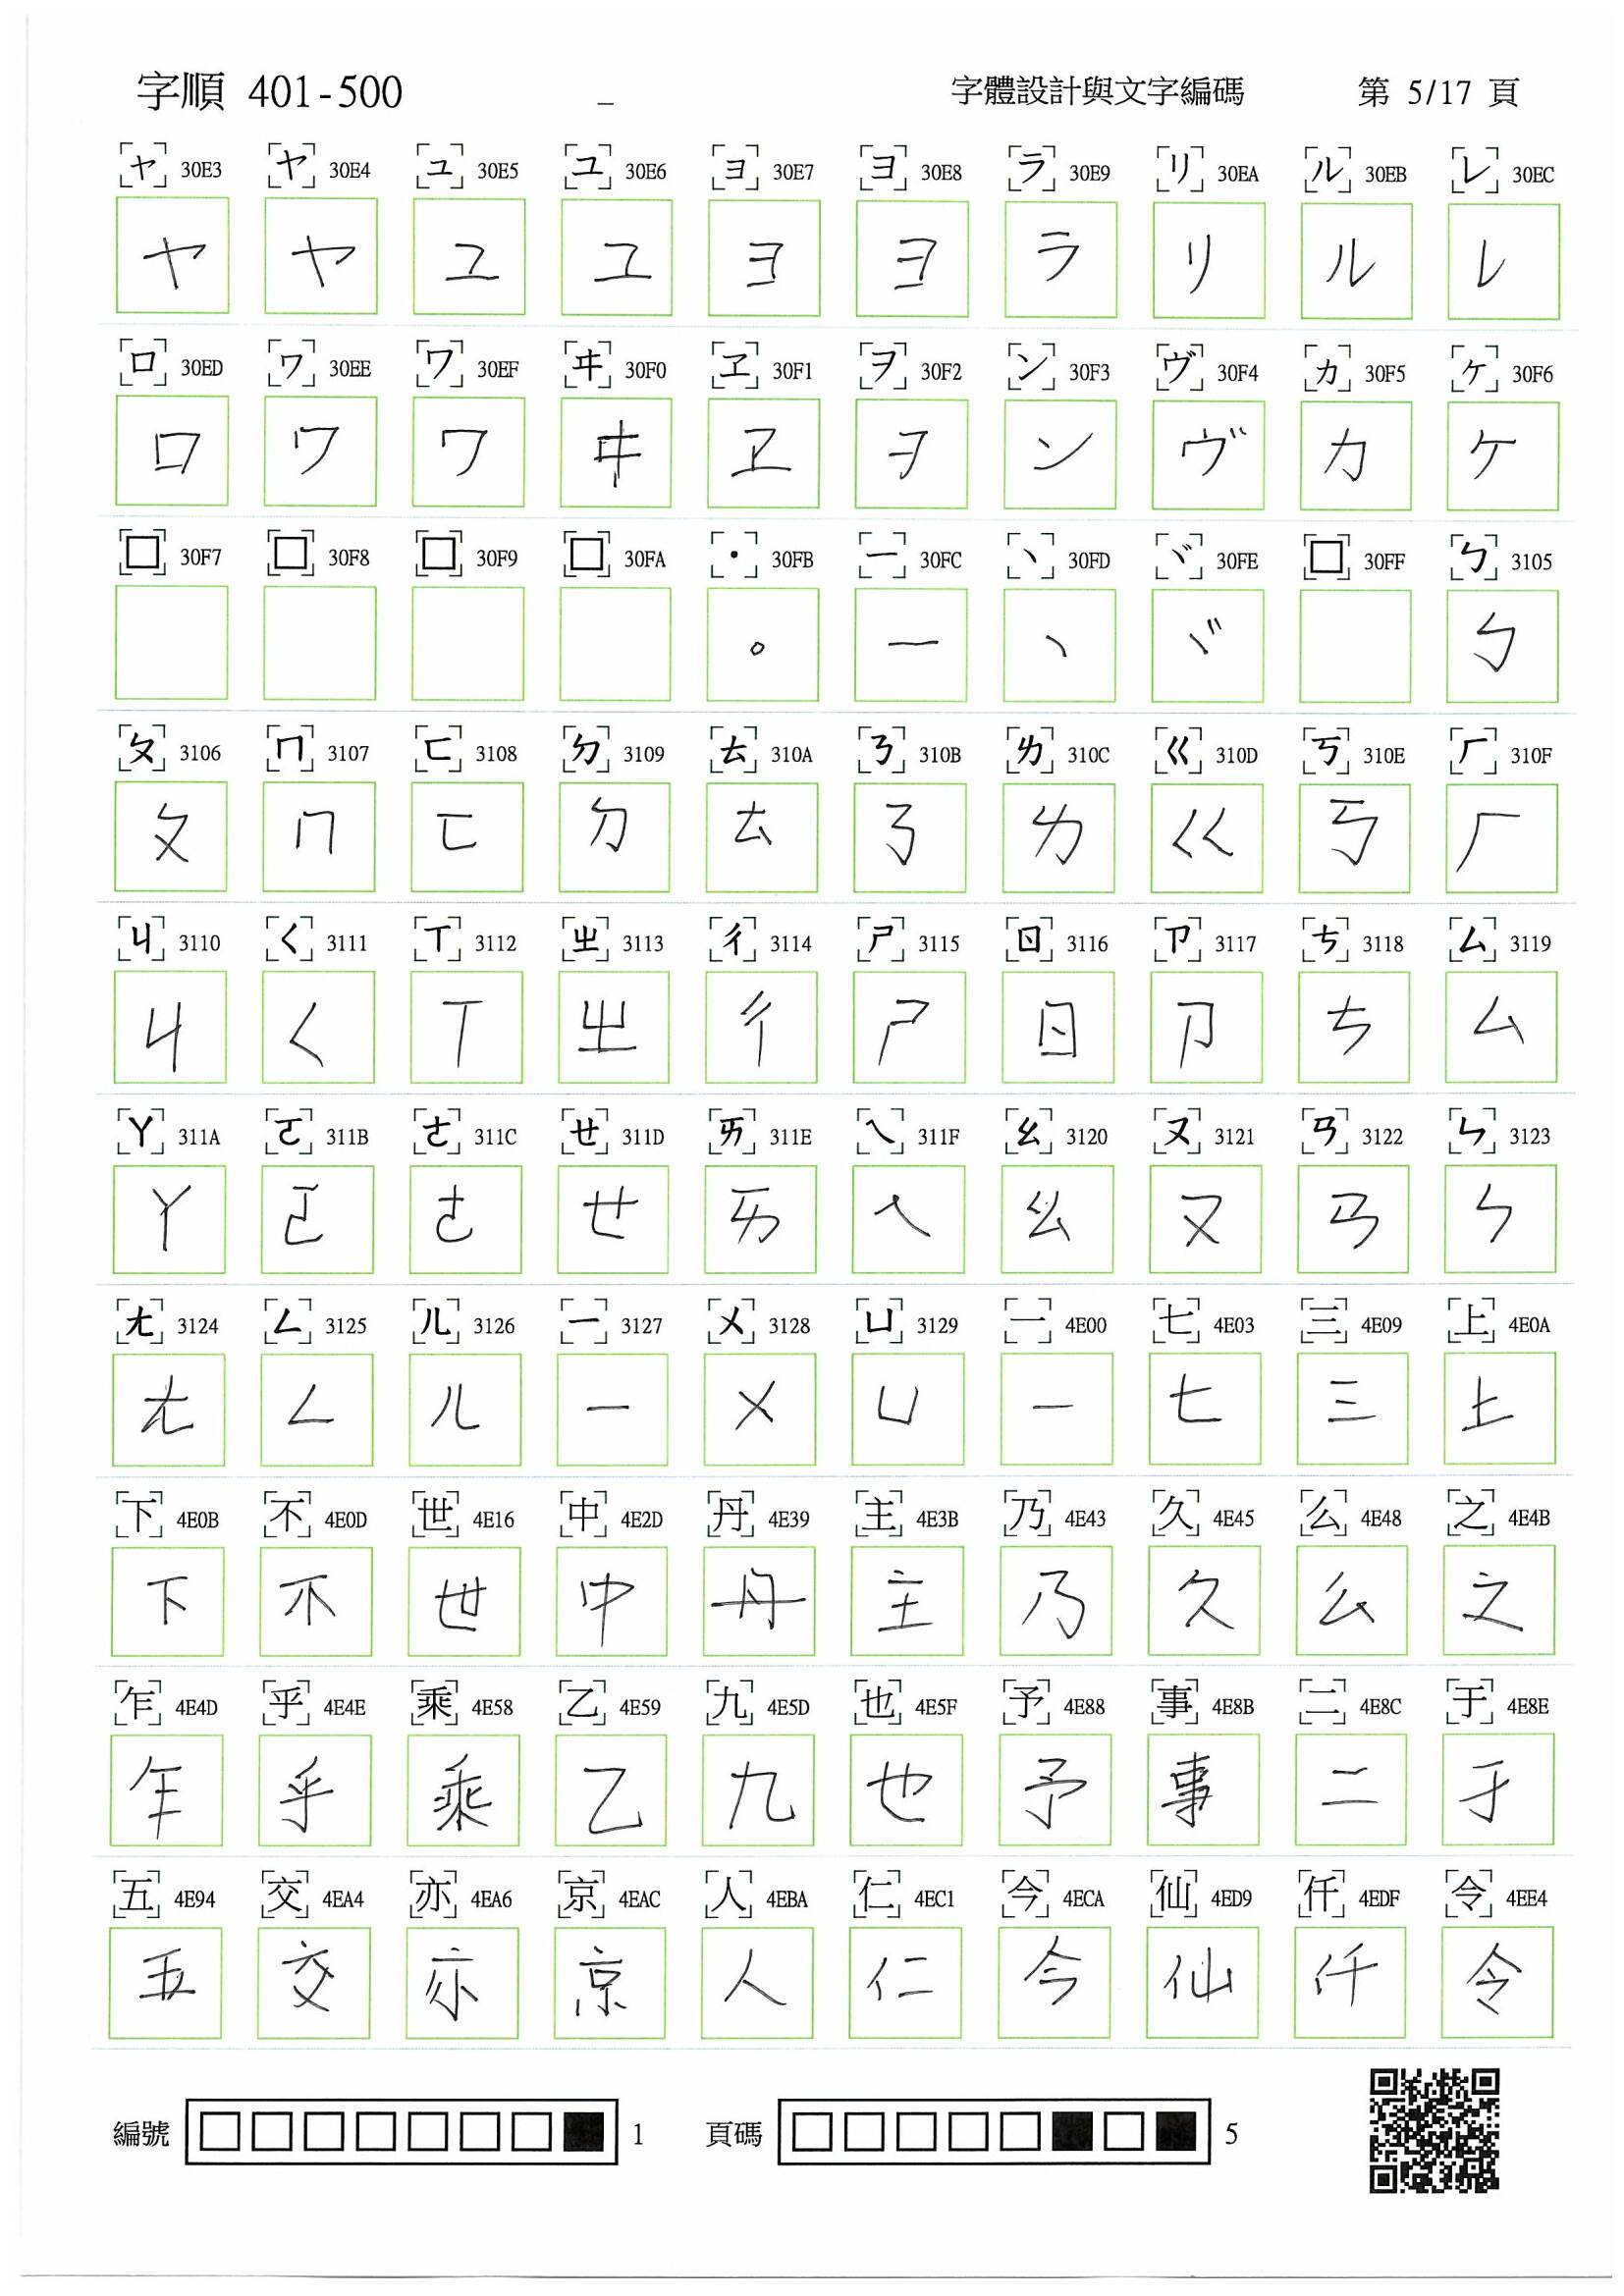 字順 401-500 _ 字體設計與文字編碼 第 5/17 頁
ャ 30E3 ヤ 30E4 ュ 30E5 ユ 30E6 ョ 30E7 ヨ 30E8 ラ 30E9 リ 30EA ル 30EB レ 30EC
ヤ ヤ ユ ユ ヨ ヨ ラ リ ル レ
ロ 30ED ヮ 30EE ワ 30EF ヰ 30F0 ヱ 30F1 ヲ 30F2 ン 30F3 ヴ 30F4 ヵ 30F5 ヶ 30F6
ロ ワ ワ ヰ ヱ ヲ ン ヴ カ ケ
□ 30F7 □ 30F8 □ 30F9 □ 30FA ・ 30FB ー 30FC ヽ 30FD ヾ 30FE □ 30FF ㄅ 3105
。 ー ヽ ヾ ㄅ
ㄆ 3106 ㄇ 3107 ㄈ 3108 ㄉ 3109 ㄊ 310A ㄋ 310B ㄌ 310C ㄍ 310D ㄎ 310E ㄏ 310F
ㄆ ㄇ ㄈ ㄉ ㄊ ㄋ ㄌ ㄍ ㄎ ㄏ
ㄐ 3110 ㄑ 3111 ㄒ 3112 ㄓ 3113 ㄔ 3114 ㄕ 3115 ㄖ 3116 ㄗ 3117 ㄘ 3118 ㄙ 3119
ㄐ ㄑ ㄒ ㄓ ㄔ ㄕ ㄖ ㄗ ㄘ ㄙ
ㄚ 311A ㄛ 311B ㄜ 311C ㄝ 311D ㄞ 311E ㄟ 311F ㄠ 3120 ㄡ 3121 ㄢ 3122 ㄣ 3123
ㄚ ㄛ ㄜ ㄝ ㄞ ㄟ ㄠ ㄡ ㄢ ㄣ
ㄤ 3124 ㄥ 3125 ㄦ 3126 ㄧ 3127 ㄨ 3128 ㄩ 3129 一 4E00 七 4E03 三 4E09 上 4E0A
ㄤ ㄥ ㄦ ㄧ ㄨ ㄩ 一 七 三 上
下 4E0B 不 4E0D 世 4E16 中 4E2D 丹 4E39 主 4E3B 乃 4E43 久 4E45 么 4E48 之 4E4B
下 不 世 中 丹 主 乃 久 么 之
乍 4E4D 乎 4E4E 乘 4E58 乙 4E59 九 4E5D 也 4E5F 予 4E88 事 4E8B 二 4E8C 于 4E8E
乍 乎 乘 乙 九 也 予 事 二 于
五 4E94 交 4EA4 亦 4EA6 京 4EAC 人 4EBA 仁 4EC1 今 4ECA 仙 4ED9 仟 4EDF 令 4EE4
五 交 亦 京 人 仁 今 仙 仟 令
編號 1 頁碼 5